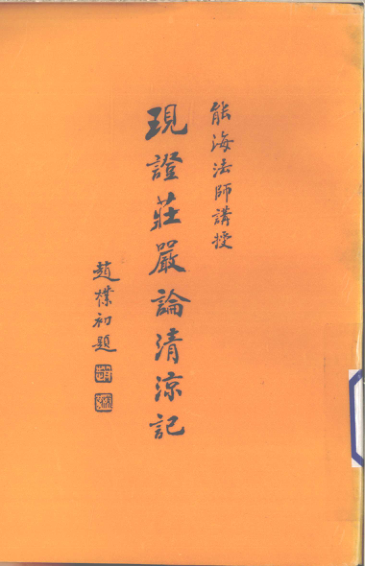 能海法師講授
現證莊嚴論清涼記
趙樸初題